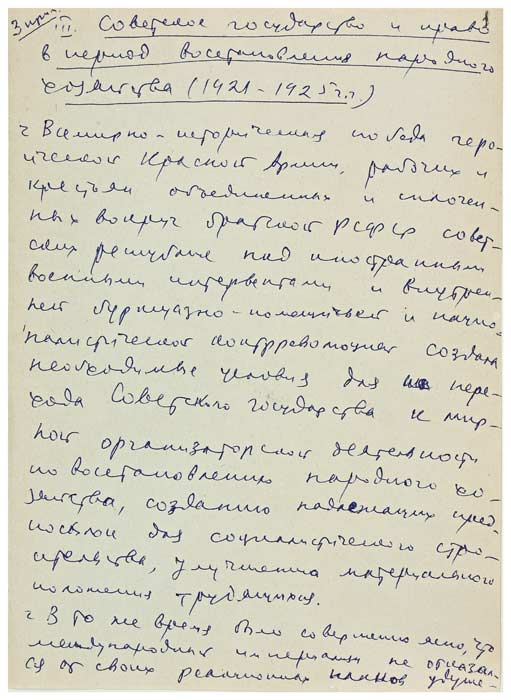 1
3 прим. III. Советское государство и право
в период восстановления народного
хозяйства (1921-1925 г.г.)
Всемирно-историческая победа геро-
ической Красной Армии, рабочих и
крестьян объединенных и сплочен-
ных вокруг братской РСФСР совет-
ских республик над иностранными
военными интервентами и внутрен-
ней буржуазно-помещичьей и нацио-
налистической контрреволюцией создала
необходимые условия для пере-
хода Советского государства к мир-
ной организаторской деятельности
по восстановлению народного хо-
зяйства, созданию надлежащих пред-
посылок для социалистического стро-
ительства, улучшению материального
положения трудящихся.
В то же время было совершенно ясно, что
международный империализм не отказал-
ся от своих реакционных планов удуше-